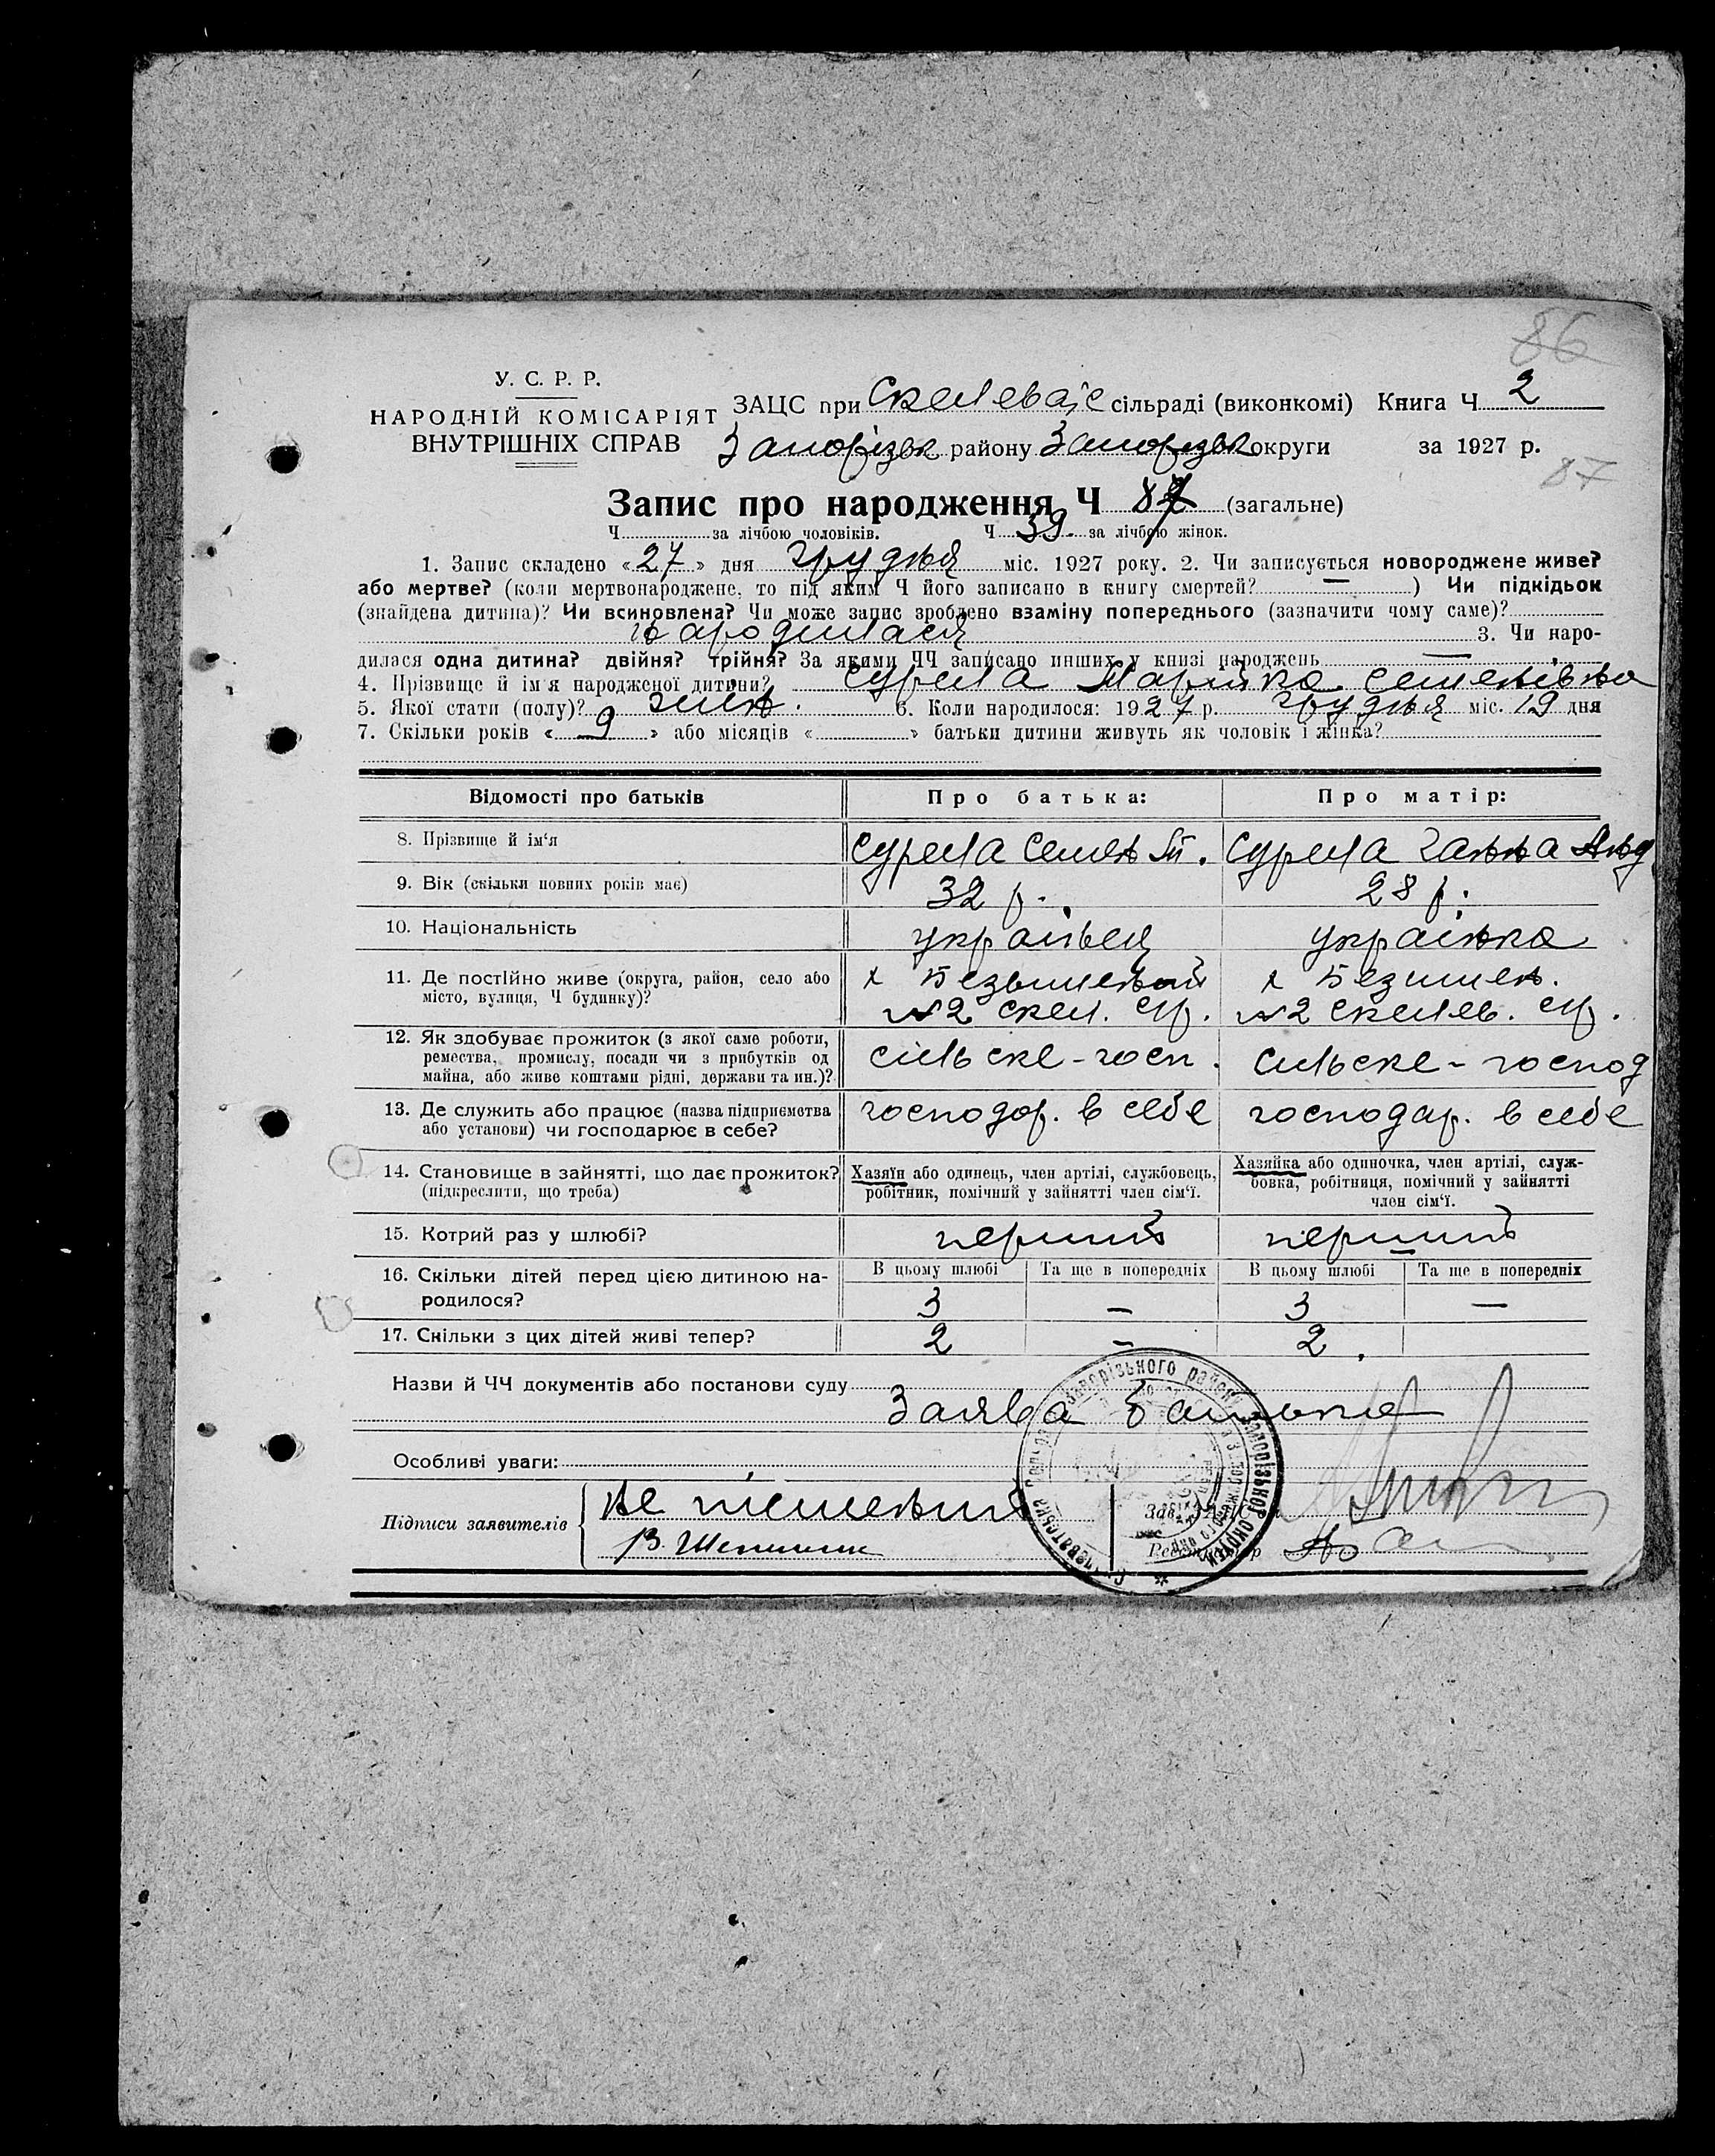 86
У. С. Р. Р.
НАРОДНІЙ КОМІСАРІЯТ
ВНУТРІШНІХ СПРАВ
ЗАЦС при Скелеваїс сільраді (виконкомі) Книга Ч 2
Запорізьк району Запорізьк округи за 1927 р.
87
Запис про народження Ч 87 (загальне)
Ч за лічбою чоловіків. Ч 39 за лічбою жінок.
1. Запис складено «27» дня грудня міс. 1927 року. 2. Чи записується новороджене живе?
або мертве? (коли мертвонароджене, то під яким Ч його записано в книгу смертей? — ) Чи підкідьок
(знайдена дитина)? Чи всиновлена? Чи може запис зроблено взаміну попереднього (зазначити чому саме)?
народилася 3. Чи наро-
дилася одна дитина? двійня? трійня? За якими ЧЧ записано инших у книзі народжень —
4. Прізвище й ім'я народженої дитини? Сурела Марійка Семенівна
5. Якої стати (полу)? жін. 6. Коли народилося: 1927 р. грудня міс. 19 дня
7. Скільки років «9» або місяців « » батьки дитини живуть як чоловік і жінка?
Відомості про батьків Про батька: Про матір:
8. Прізвище й ім'я Сурела Семен М. Сурела Ганна Анд
9. Вік (скільки повних років має) 32 р. 28 р.
10. Національність українець українка
11. Де постійно живе (округа, район, село або х Безыменый х Безимен.
місто, вулиця, Ч будинку)? №2 Скел. с/р. №2 Скелев. с/р.
12. Як здобуває прожиток (з якої саме роботи,
ремества, промислу, посади чи з прибутків од сільске-госп. сільске-господ
майна, або живе коштами рідні, держави та ин.)?
13. Де служить або працює (назва підприємства господар. в себе господар. в себе
або установи) чи господарює в себе?
14. Становище в зайнятті, що дає прожиток? Хазяїн або одинець, член артілі, службовець, Хазяйка або одиночка, член артілі, служ-
(підкреслити, що треба) робітник, помічний у зайнятті член сім'ї. бовка, робітниця, помічний у зайнятті
член сім'ї.
15. Котрий раз у шлюбі? перший перший
16. Скільки дітей перед цією дитиною на- В цьому шлюбі Та ще в попередніх В цьому шлюбі Та ще в попередніх
родилося? 3 — 3 —
17. Скільки з цих дітей живі тепер? 2 — 2
Назви й ЧЧ документів або постанови суду
Заява батька
Особливі уваги:
Підписи заявителів не письменный
Зав. ЗАЦС
Реєстратор